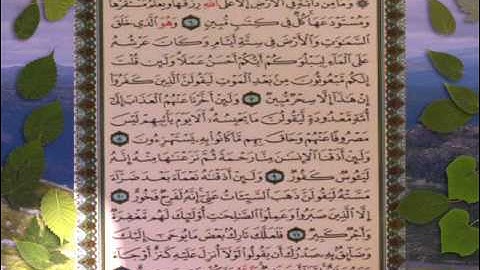 ۞ وَمَا مِن دَآبَّةٍ فِي ٱلْأَرْضِ إِلَّا عَلَى ٱللَّهِ رِزْقُهَا وَيَعْلَمُ مُسْتَقَرَّهَا
وَمُسْتَوْدَعَهَا كُلٌّ فِي كِتَٰبٍ مُّبِينٍ ٦ وَهُوَ ٱلَّذِي خَلَقَ
ٱلسَّمَٰوَٰتِ وَٱلْأَرْضَ فِي سِتَّةِ أَيَّامٍ وَكَانَ عَرْشُهُۥ
عَلَى ٱلْمَآءِ لِيَبْلُوَكُمْ أَيُّكُمْ أَحْسَنُ عَمَلًا وَلَئِن قُلْتَ
إِنَّكُم مَّبْعُوثُونَ مِنۢ بَعْدِ ٱلْمَوْتِ لَيَقُولَنَّ ٱلَّذِينَ كَفَرُوٓا۟
إِنْ هَٰذَآ إِلَّا سِحْرٌ مُّبِينٌ ٧ وَلَئِنْ أَخَّرْنَا عَنْهُمُ ٱلْعَذَابَ إِلَىٰٓ
أُمَّةٍ مَّعْدُودَةٍ لَّيَقُولُنَّ مَا يَحْبِسُهُۥٓ أَلَا يَوْمَ يَأْتِيهِمْ لَيْسَ
مَصْرُوفًا عَنْهُمْ وَحَاقَ بِهِم مَّا كَانُوا۟ بِهِۦ يَسْتَهْزِءُونَ ٨
وَلَئِنْ أَذَقْنَا ٱلْإِنسَٰنَ مِنَّا رَحْمَةً ثُمَّ نَزَعْنَٰهَا مِنْهُ إِنَّهُۥ
لَيَـُٔوسٌ كَفُورٌ ٩ وَلَئِنْ أَذَقْنَٰهُ نَعْمَآءَ بَعْدَ ضَرَّآءَ
مَسَّتْهُ لَيَقُولَنَّ ذَهَبَ ٱلسَّيِّـَٔاتُ عَنِّيٓ إِنَّهُۥ لَفَرِحٌ فَخُورٌ ١٠
إِلَّا ٱلَّذِينَ صَبَرُوا۟ وَعَمِلُوا۟ ٱلصَّٰلِحَٰتِ أُو۟لَٰٓئِكَ لَهُم مَّغْفِرَةٌ
وَأَجْرٌ كَبِيرٌ ١١ فَلَعَلَّكَ تَارِكٌۢ بَعْضَ مَا يُوحَىٰٓ إِلَيْكَ
وَضَآئِقٌۢ بِهِۦ صَدْرُكَ أَن يَقُولُوا۟ لَوْلَآ أُنزِلَ عَلَيْهِ كَنزٌ أَوْ جَآءَ